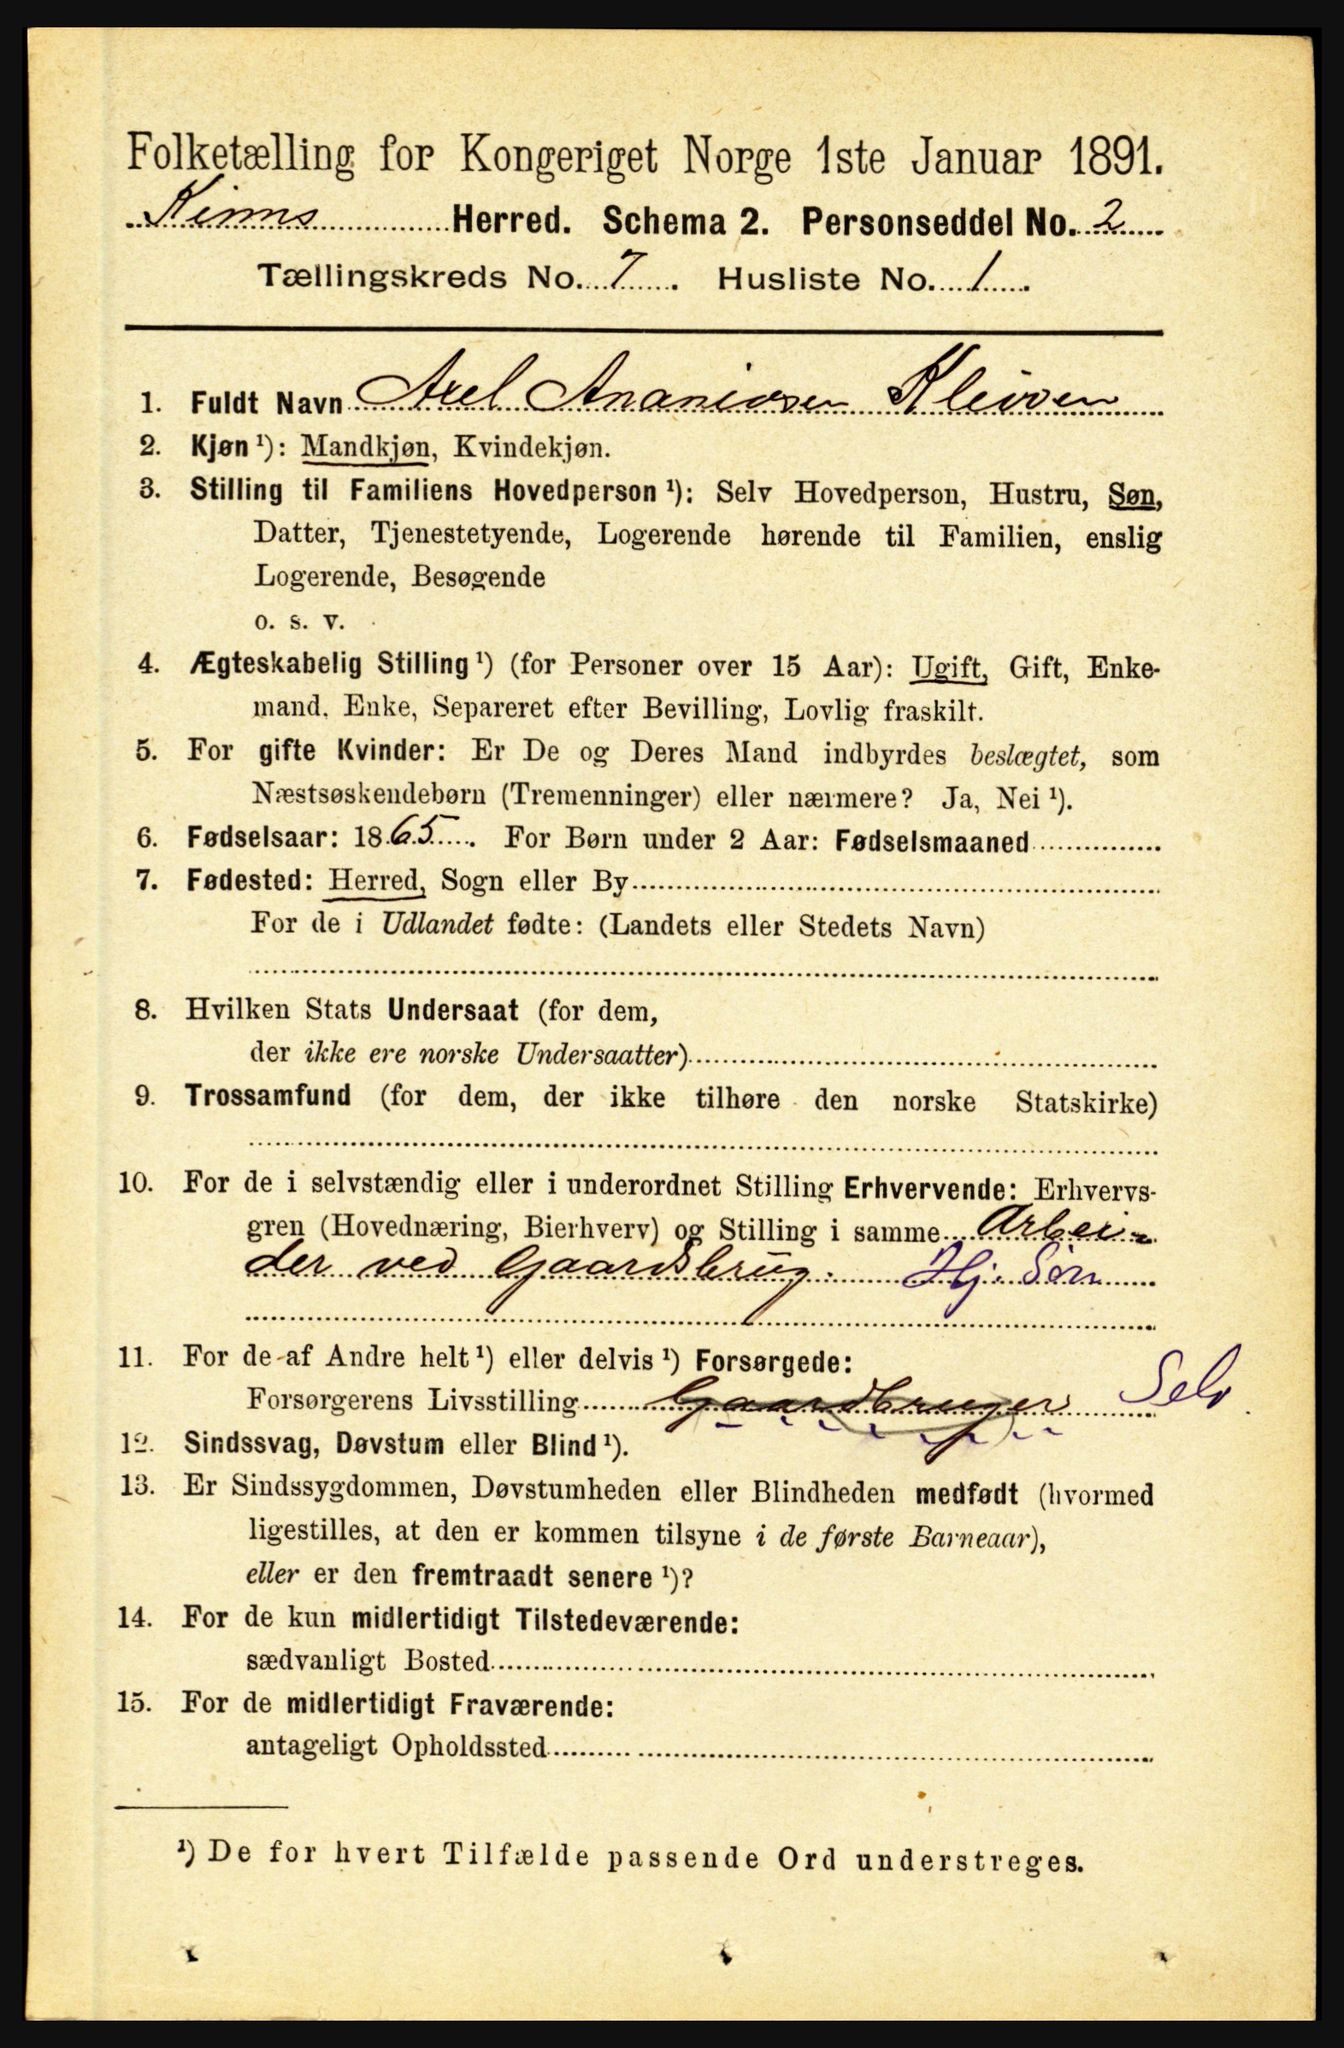 Folketælling for Kongeriget Norge 1ste Januar 1891.
Kinns Herred. Schema 2. Personseddel No. 2
Tællingskreds No. 7. Husliste No. 1.
1. Fuldt Navn Axel Ananiasen Kleiven
2. Kjøn ¹): Mandkjøn, Kvindekjøn.
3. Stilling til Familiens Hovedperson ¹): Selv Hovedperson, Hustru, Søn,
Datter, Tjenestetyende, Logerende hørende til Familien, enslig
Logerende, Besøgende
o. s. v.
4. Ægteskabelig Stilling ¹) (for Personer over 15 Aar): Ugift, Gift, Enke-
mand, Enke, Separeret efter Bevilling, Lovlig fraskilt.
5. For gifte Kvinder: Er De og Deres Mand indbyrdes beslægtet, som
Næstsøskendebørn (Tremenninger) eller nærmere? Ja, Nei ¹).
6. Fødselsaar: 1865. For Børn under 2 Aar: Fødselsmaaned
7. Fødested: Herred, Sogn eller By
For de i Udlandet fødte: (Landets eller Stedets Navn)
8. Hvilken Stats Undersaat (for dem,
der ikke ere norske Undersaatter)
9. Trossamfund (for dem, der ikke tilhøre den norske Statskirke)
10. For de i selvstændig eller i underordnet Stilling Erhvervende: Erhvervs-
gren (Hovednæring, Bierhverv) og Stilling i samme Arbei-
der ved Gaardsbrug. Hj. Søn
11. For de af Andre helt ¹) eller delvis ¹) Forsørgede:
Forsørgerens Livsstilling Gaardbruger Selv
12. Sindssvag, Døvstum eller Blind ¹).
13. Er Sindssygdommen, Døvstumheden eller Blindheden medfødt (hvormed
ligestilles, at den er kommen tilsyne i de første Barneaar),
eller er den fremtraadt senere ¹)?
14. For de kun midlertidigt Tilstedeværende:
sædvanligt Bosted
15. For de midlertidigt Fraværende:
antageligt Opholdssted
¹) De for hvert Tilfælde passende Ord understreges.